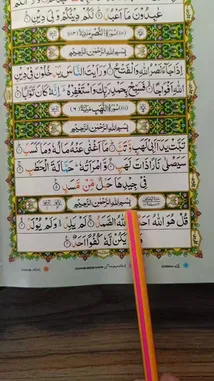 عٰبِدُوْنَ مَاۤ اَعْبُدُ ۞ لَكُمْ دِیْنُكُمْ وَلِیَ دِیْنِ ۞
بِسْمِ اللّٰهِ الرَّحْمٰنِ الرَّحِیْمِ
اِذَا جَآءَ نَصْرُ اللّٰهِ وَالْفَتْحُ ۞ وَرَاَیْتَ النَّاسَ یَدْخُلُوْنَ فِیْ دِیْنِ
اللّٰهِ اَفْوَاجًا ۞ فَسَبِّحْ بِحَمْدِ رَبِّكَ وَاسْتَغْفِرْهُ ؔ اِنَّهٗ كَانَ تَوَّابًا ۞
بِسْمِ اللّٰهِ الرَّحْمٰنِ الرَّحِیْمِ
تَبَّتْ یَدَاۤ اَبِیْ لَهَبٍ وَّتَبَّ ۞ مَاۤ اَغْنٰی عَنْهُ مَالُهٗ وَمَا كَسَبَ ۞
سَیَصْلٰی نَارًا ذَاتَ لَهَبٍ ۞ وَّامْرَاَتُهٗ ؕ حَمَّالَةَ الْحَطَبِ ۞
فِیْ جِیْدِهَا حَبْلٌ مِّنْ مَّسَدٍ ۞
بِسْمِ اللّٰهِ الرَّحْمٰنِ الرَّحِیْمِ
قُلْ هُوَ اللّٰهُ اَحَدٌ ۞ اَللّٰهُ الصَّمَدُ ۞ لَمْ یَلِدْ ۙ وَلَمْ یُوْلَدْ ۞
یَكُنْ لَّهٗ كُفُوًا اَحَدٌ ۞